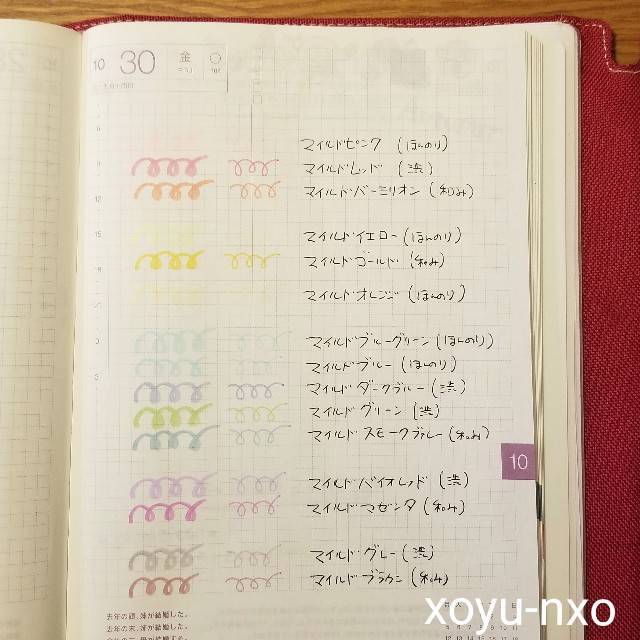 10 30 金
マイルドピンク (ほんのり)
マイルドレッド (渋)
マイルドバーミリオン (和み)
12
マイルドイエロー (ほんのり)
マイルドゴールド (和み)
マイルドオレンジ (ほんのり)
マイルドブルーグリーン (ほんのり)
マイルドブルー (ほんのり)
マイルドダークブルー (渋)
マイルドグリーン (渋)
マイルドスモークブルー (和み)
10
マイルドバイオレッド (渋)
マイルドマゼンタ (和み)
マイルドグレー (渋)
マイルドブラウン (和み)
去年の頭、姉が結婚した。
去年の末、妹が結婚した。
xoyu-nxo